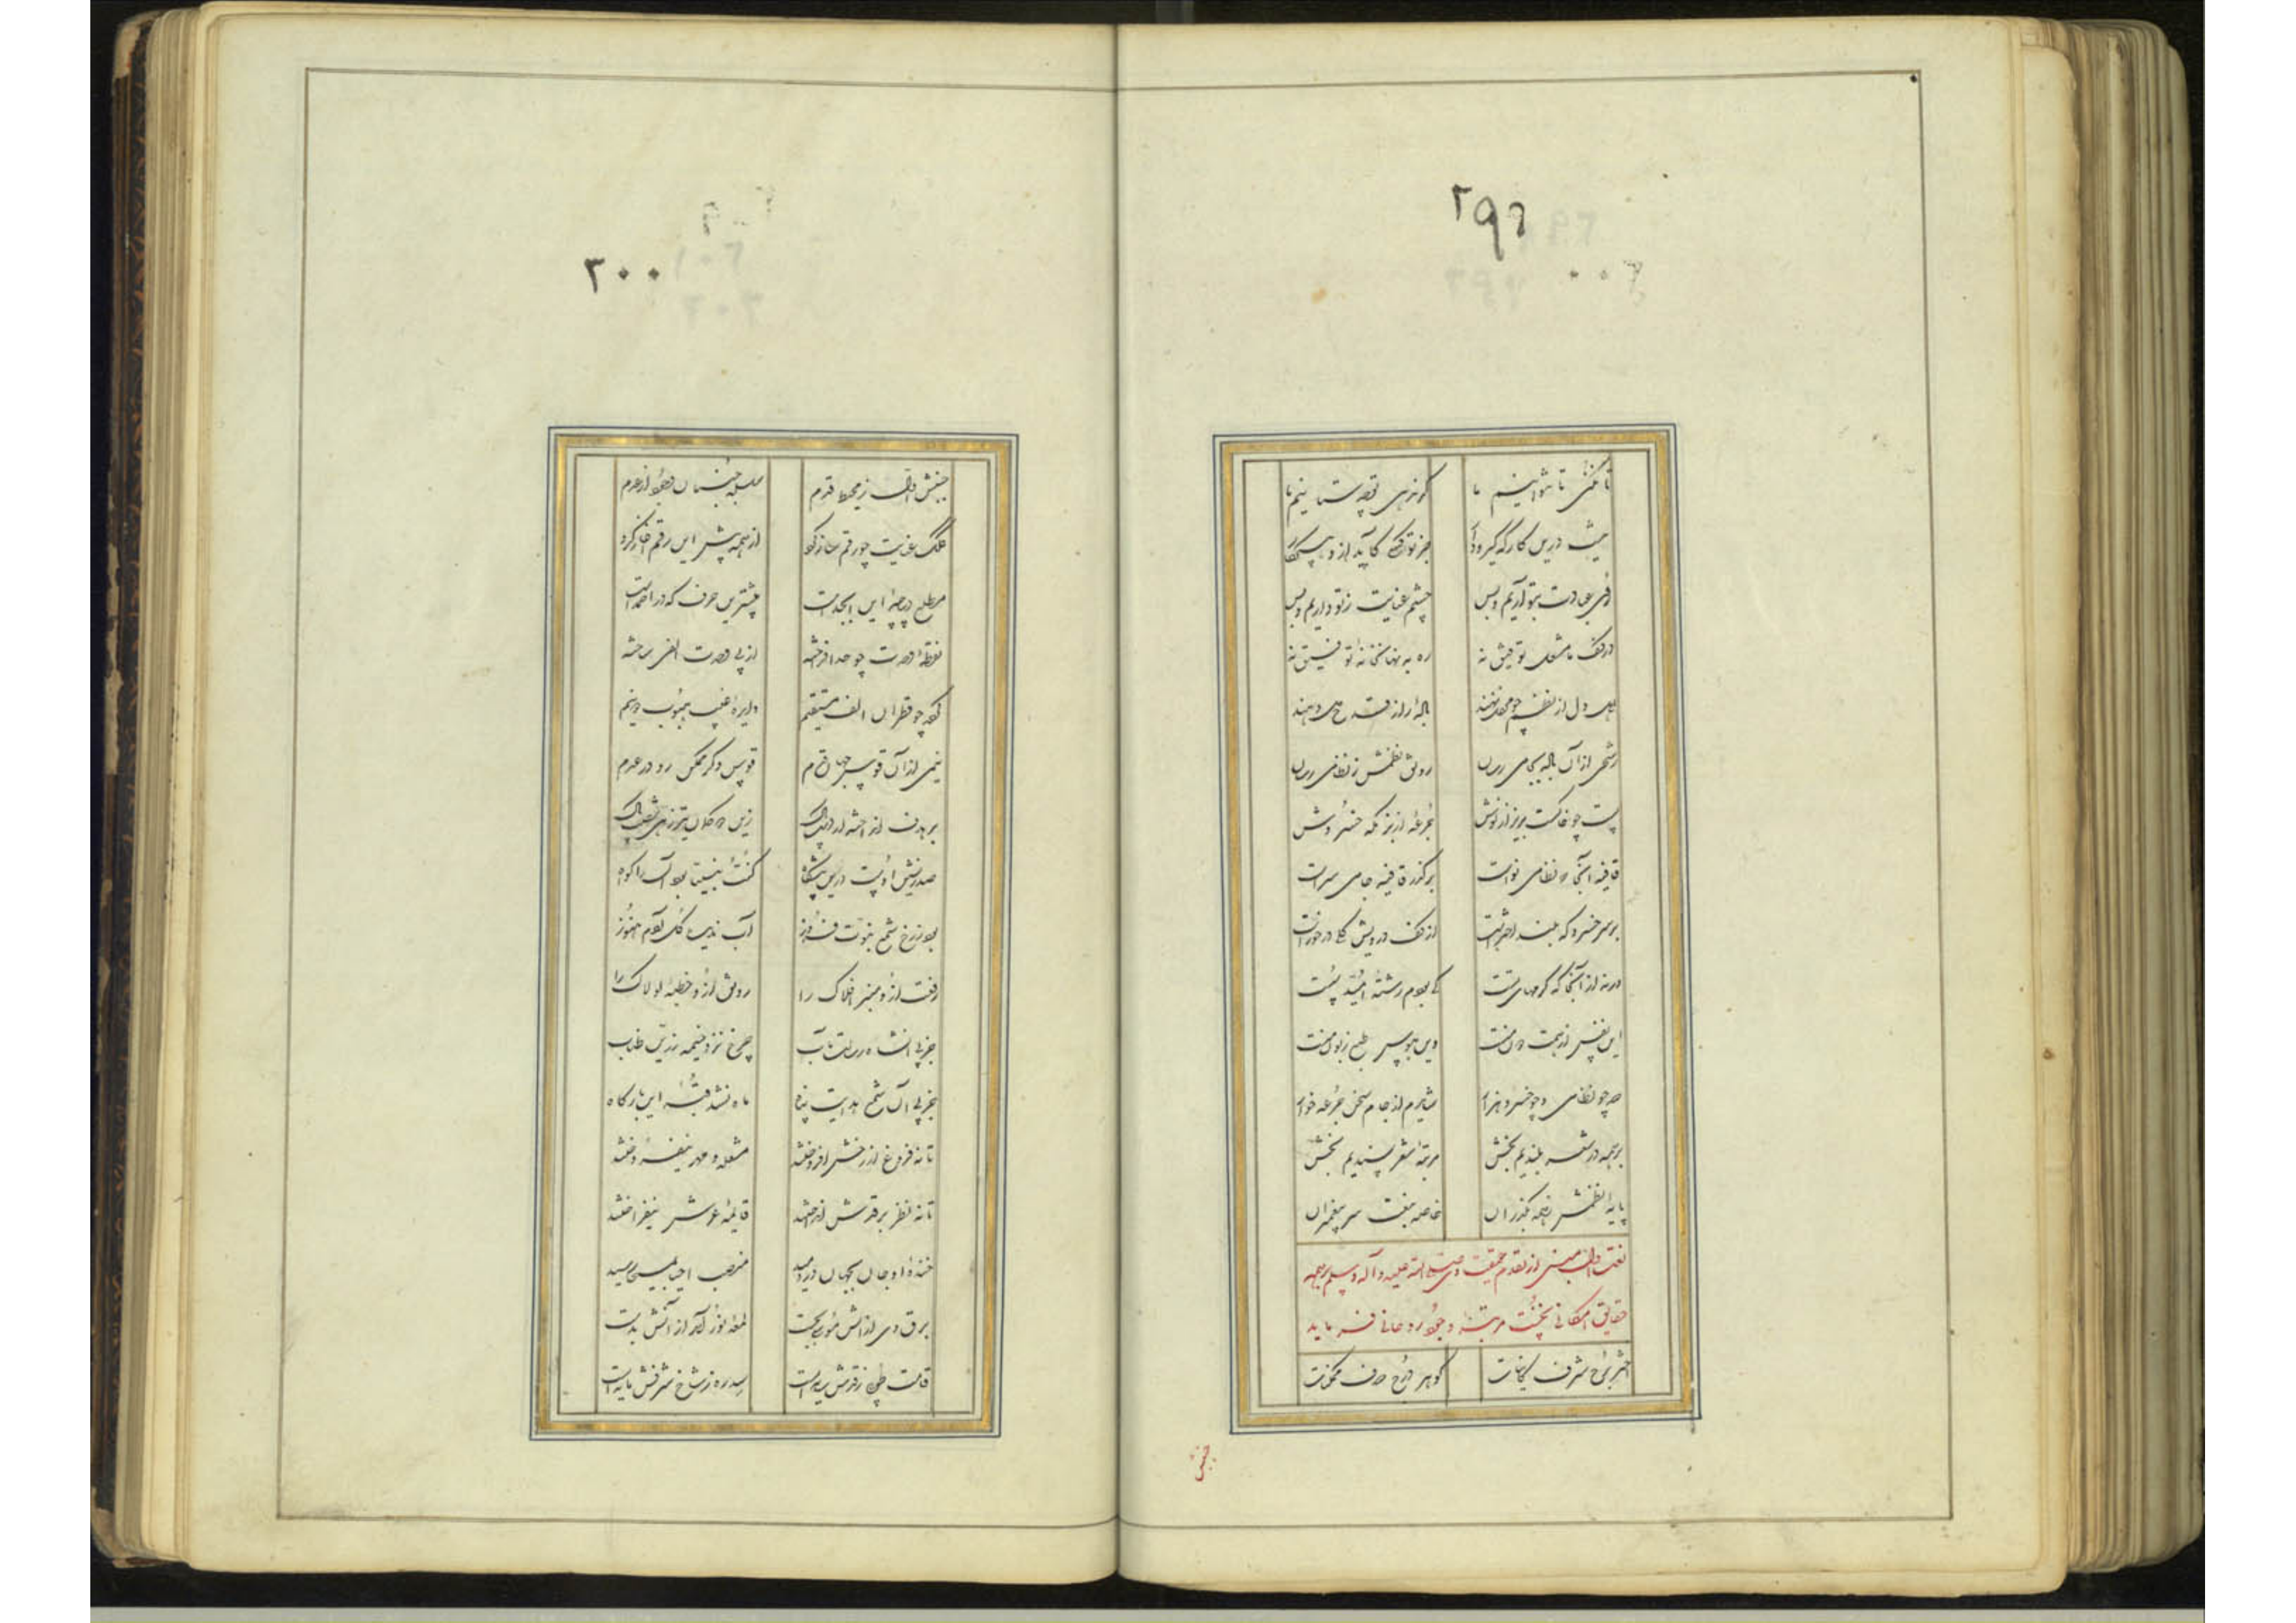 ۲۹۹
تا نکنی تا نتوانیم ما
گر ندهی قوه ستانیم ما
نیست درین کارگه گیرودار
جز تو کسی کاید ازو هیچ کار
روی عبادت بتو آریم و بس
چشم عنایت ز تو داریم و بس
در کف ما مشعل توفیق نه
ره به نهانخانه تو فیق نه
اهل دل از نظم چو محفل نهند
باده راز از قدح دل دهند
رشحی ازان باده بجامی رسان
رونق نظمش ز نظامی رسان
پست چو خاکست بریز از نوش
جرعه از بزمگه خسروش
قافیه آنجا که نظامی نواست
برگذر قافیه جامی سراست
بر سر خسرو که بلند افسرست
از کف درویش گلی درخورست
ورنه از آنجا که کرمهای تست
کی بودم رشته امید سست
این نفس از همت دون منست
وین هوس از طبع زبون منست
صد چو نظامی و چو خسرو هزار
شایدم از جام سخن جرعه خوار
بر همه در شعر بلندیم بخش
مرتبه شعر پسندیم بخش
پایه نظمش ز همه بگذران
خاصه بنعت سر پیغمبران
نعت اول مبنی از تقدم حقیقت وی صلی الله علیه و آله و سلم بر همه
حقایق امکانی بحسب مرتبه وجود روحانی فرماید
اختر برج شرف کاینات
گوهر درج صدف ممکنات
جنبش
۳۰۰
جنبش اول ز محیط قدم
سلسله جنبان وجود از عدم
کلک عنایت چو رقم ساز کرد
از همه پیش این رقم آغاز کرد
مطلع دیباچه این ابجدست
پیشترین حرف که در احمدست
نقطه وحدت چو قد افراخته
از پی وحدت الفی ساخته
کرد چو قطر آن الف مستقیم
دایره غیب هویت دو نیم
نیمی ازان قوس جهان قدم
قوس دگر ممکن رو در عدم
صدرنشین اوست درین پیشگاه
کنت نبیا بود آنرا گواه
بود ز رخ شمع نبوت فروز
آب ندیده گل آدم هنوز
رفعت ازو منبر افلاک را
رونق ازو خطبه لولاک را
جز پی آن شاه رسالت مآب
چرخ نزد خیمه زرین طناب
جز پی آن شمع هدایت پناه
ماه نشد قبه این بارگاه
تا نه فروغ از رخش افروختند
مشعله مهر نیفروختند
تا نه نظر بر قدش انداختند
قایمه عرش نیفراختند
خنده او جان بجهان در دمید
منصب احیا بمسیحا رسید
برق وی از آتش موسی بجست
لمعه نور آمد از آتش بدست
قامت طوبی ز قدش سایه ایست
سدره ز شاخ شرفش پایه ایست